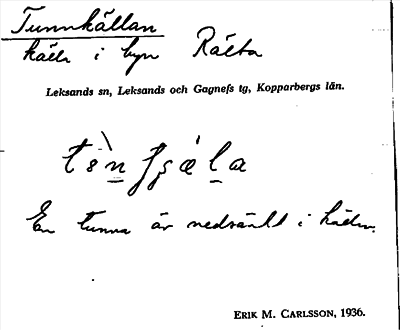 Tunnkällan
källa i byn Rälta
Leksands sn, Leksands och Gagnefs tg, Kopparbergs län.
En tunna är nedsänkt i källan.
ERIK M. CARLSSON, 1936.